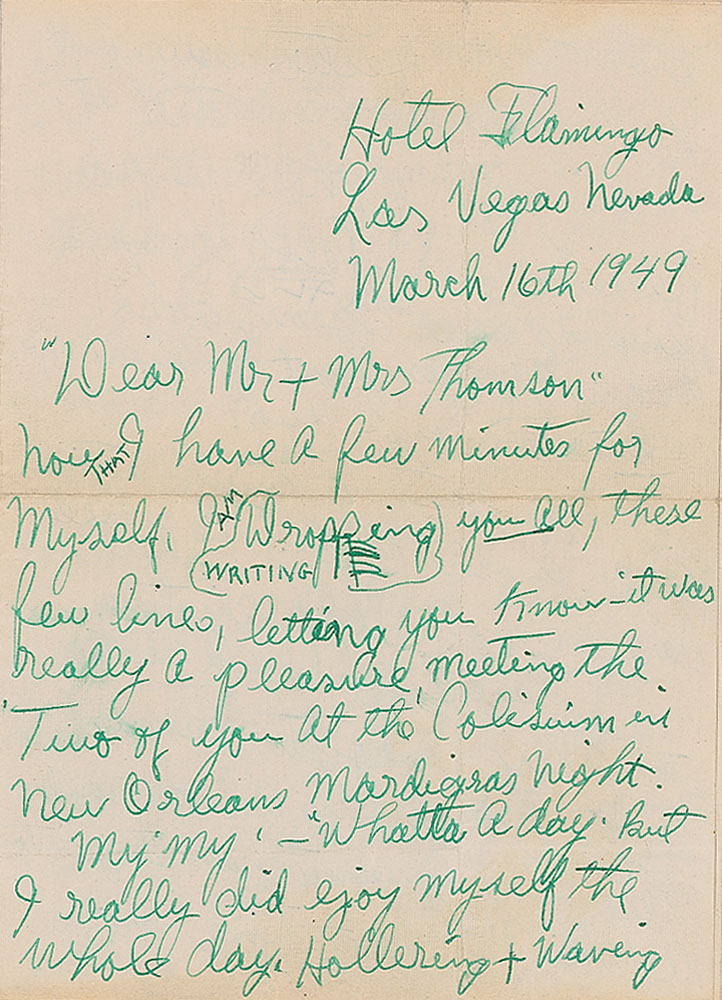 Hotel Flamingo
Las Vegas Nevada
March 16th 1949
"Dear Mr + Mrs Thomson"
Now THAT I have a few minutes for
Myself, I AM Dropping you all, these
(WRITING)
few lines, letting you know - it was
really a pleasure, meeting the
Two of you at the Coliseium in
New Orleans Mardigras Night.
My' my' - "Whatta a day. But
I really did ejoy myself the
whole day. Hollering + Waving